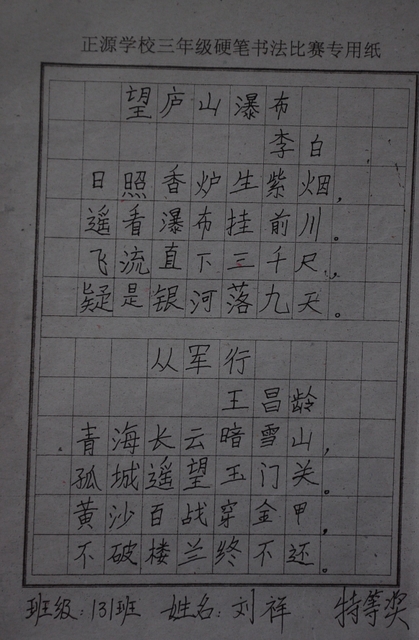 正源学校三年级硬笔书法比赛专用纸
望庐山瀑布
李白
日照香炉生紫烟，
遥看瀑布挂前川。
飞流直下三千尺，
疑是银河落九天。
从军行
王昌龄
青海长云暗雪山，
孤城遥望玉门关。
黄沙百战穿金甲，
不破楼兰终不还。
班级：131班 姓名：刘祥 特等奖